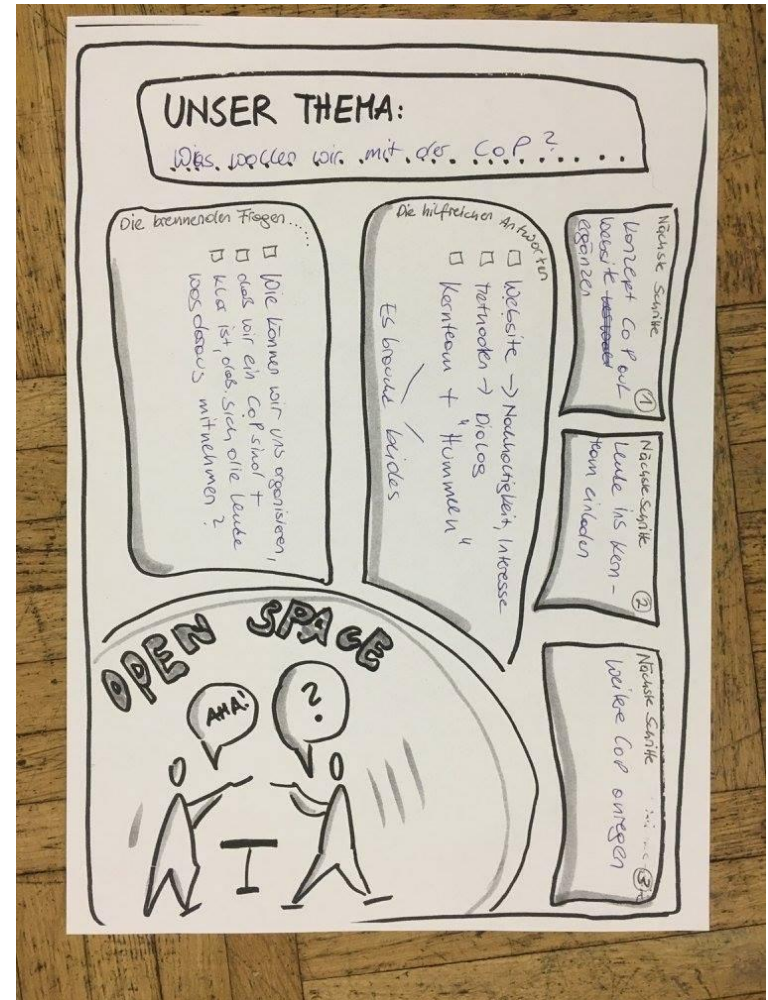 UNSER THEMA:
Was wollen wir mit der CoP?
Die brennenden Fragen......
Wie können wir uns organisieren,
daß wir ein CoP sind +
klar ist, daß sich die Leute
was daraus mitnehmen?
Die hilfreichen Antworten
Website -> Nachhaltigkeit, Interesse
Methoden -> Dialog
Kernteam + "Hummeln"
Es braucht beides
Nächste Schritte
①
Konzept CoP auf
Website
ergänzen
Nächste Schritte
②
Leute ins Kern-
team einladen
Nächste Schritte
③
weitere CoP anregen
OPEN SPACE
AHA!
?